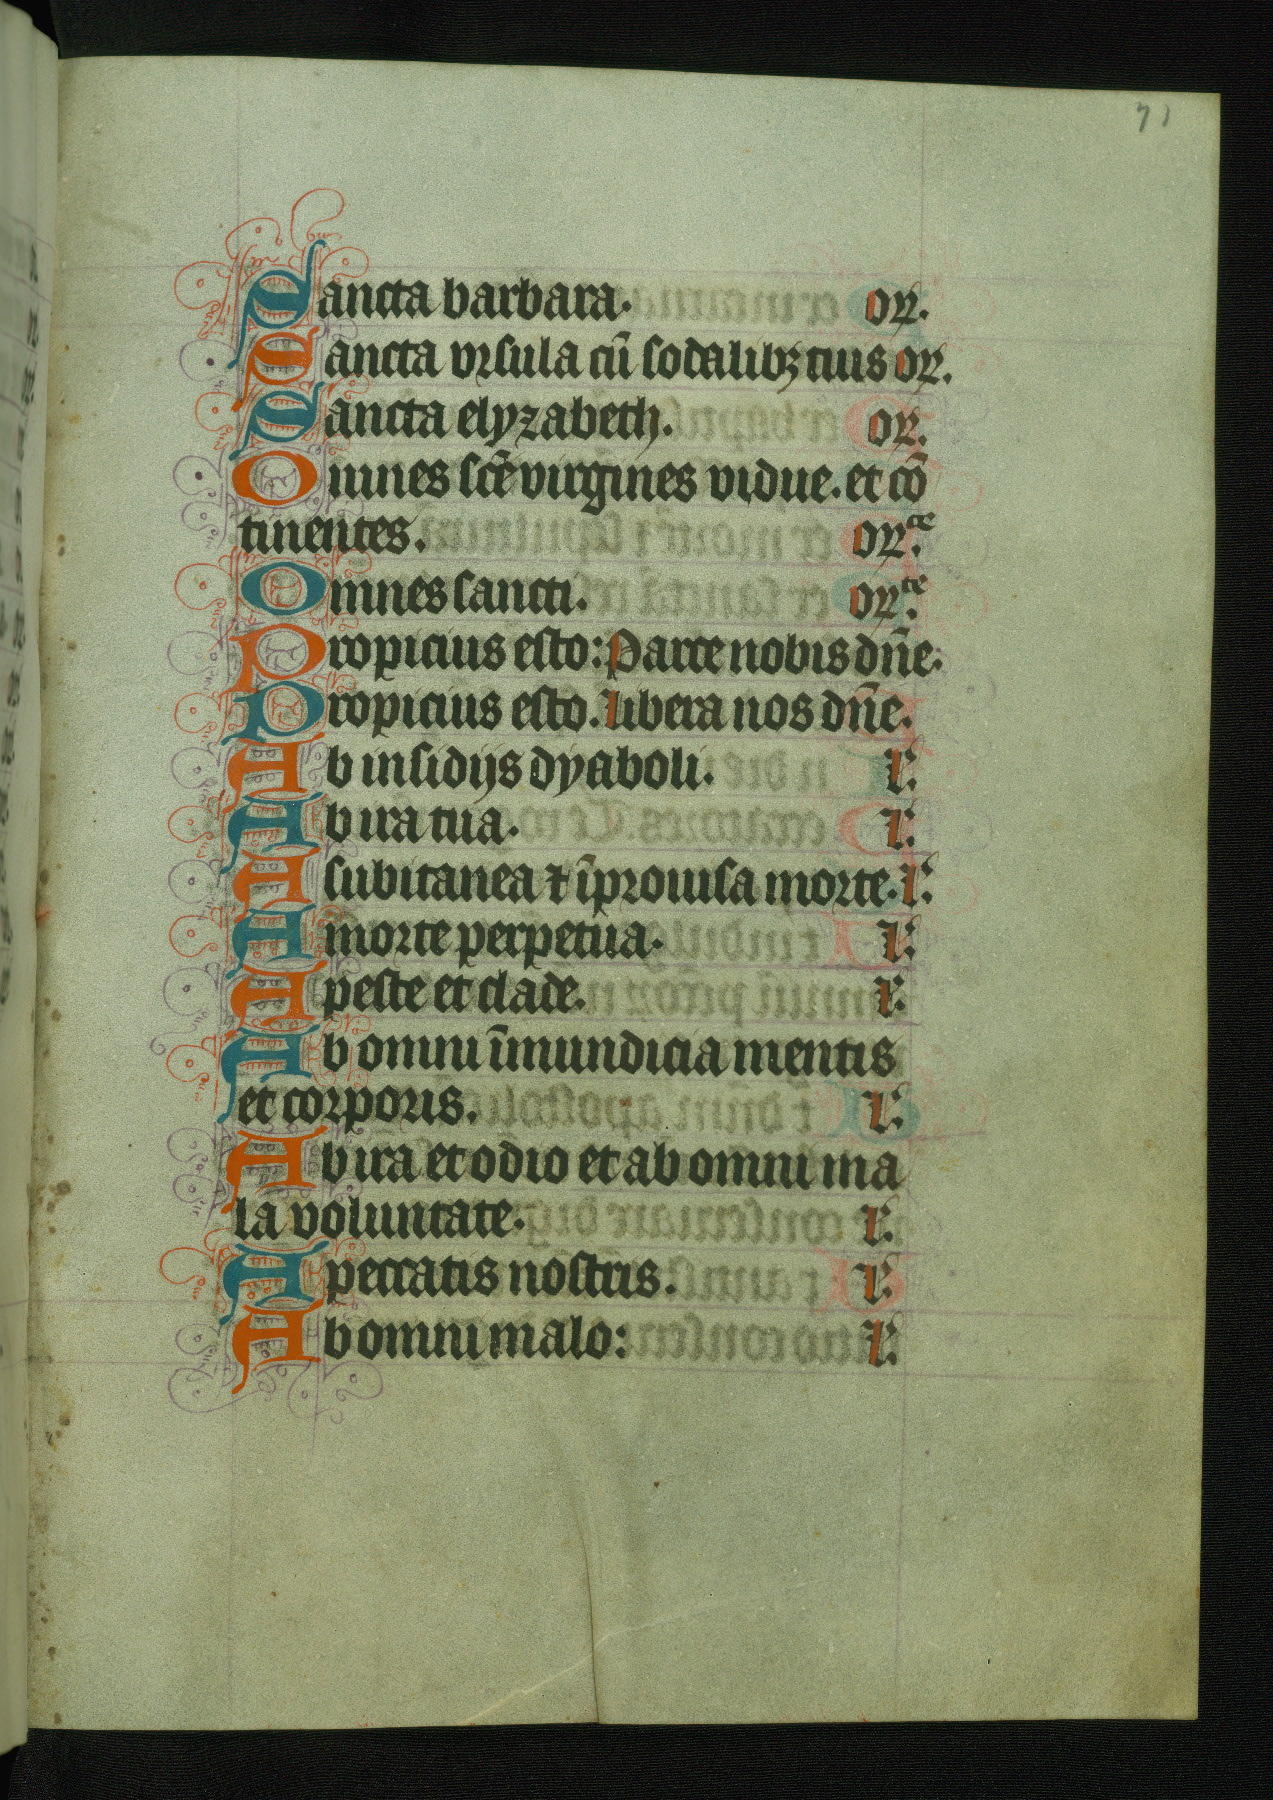 71
Sancta barbara. or̄.
Sancta vrsula cū sodalibꝫ tuis or̄.
Sancta elyzabeth. or̄.
Omnes sctē virgines vidue. et cō
tinentes. or̄.te
Omnes sancti. or̄.te
Propicius esto: Parce nobis dn̄e.
Propicius esto. libera nos dn̄e.
Ab insidijs dyaboli. l.
Ab ira tua. l.
A subitanea ⁊ īprouisa morte. l.
A morte perpetua. l.
A peste et clade. l.
Ab omni īmundicia mentis
et corporis. l.
Ab ira et odio et ab omni ma
la voluntate. l.
A peccatis nostris. l.
Ab omni malo: l.